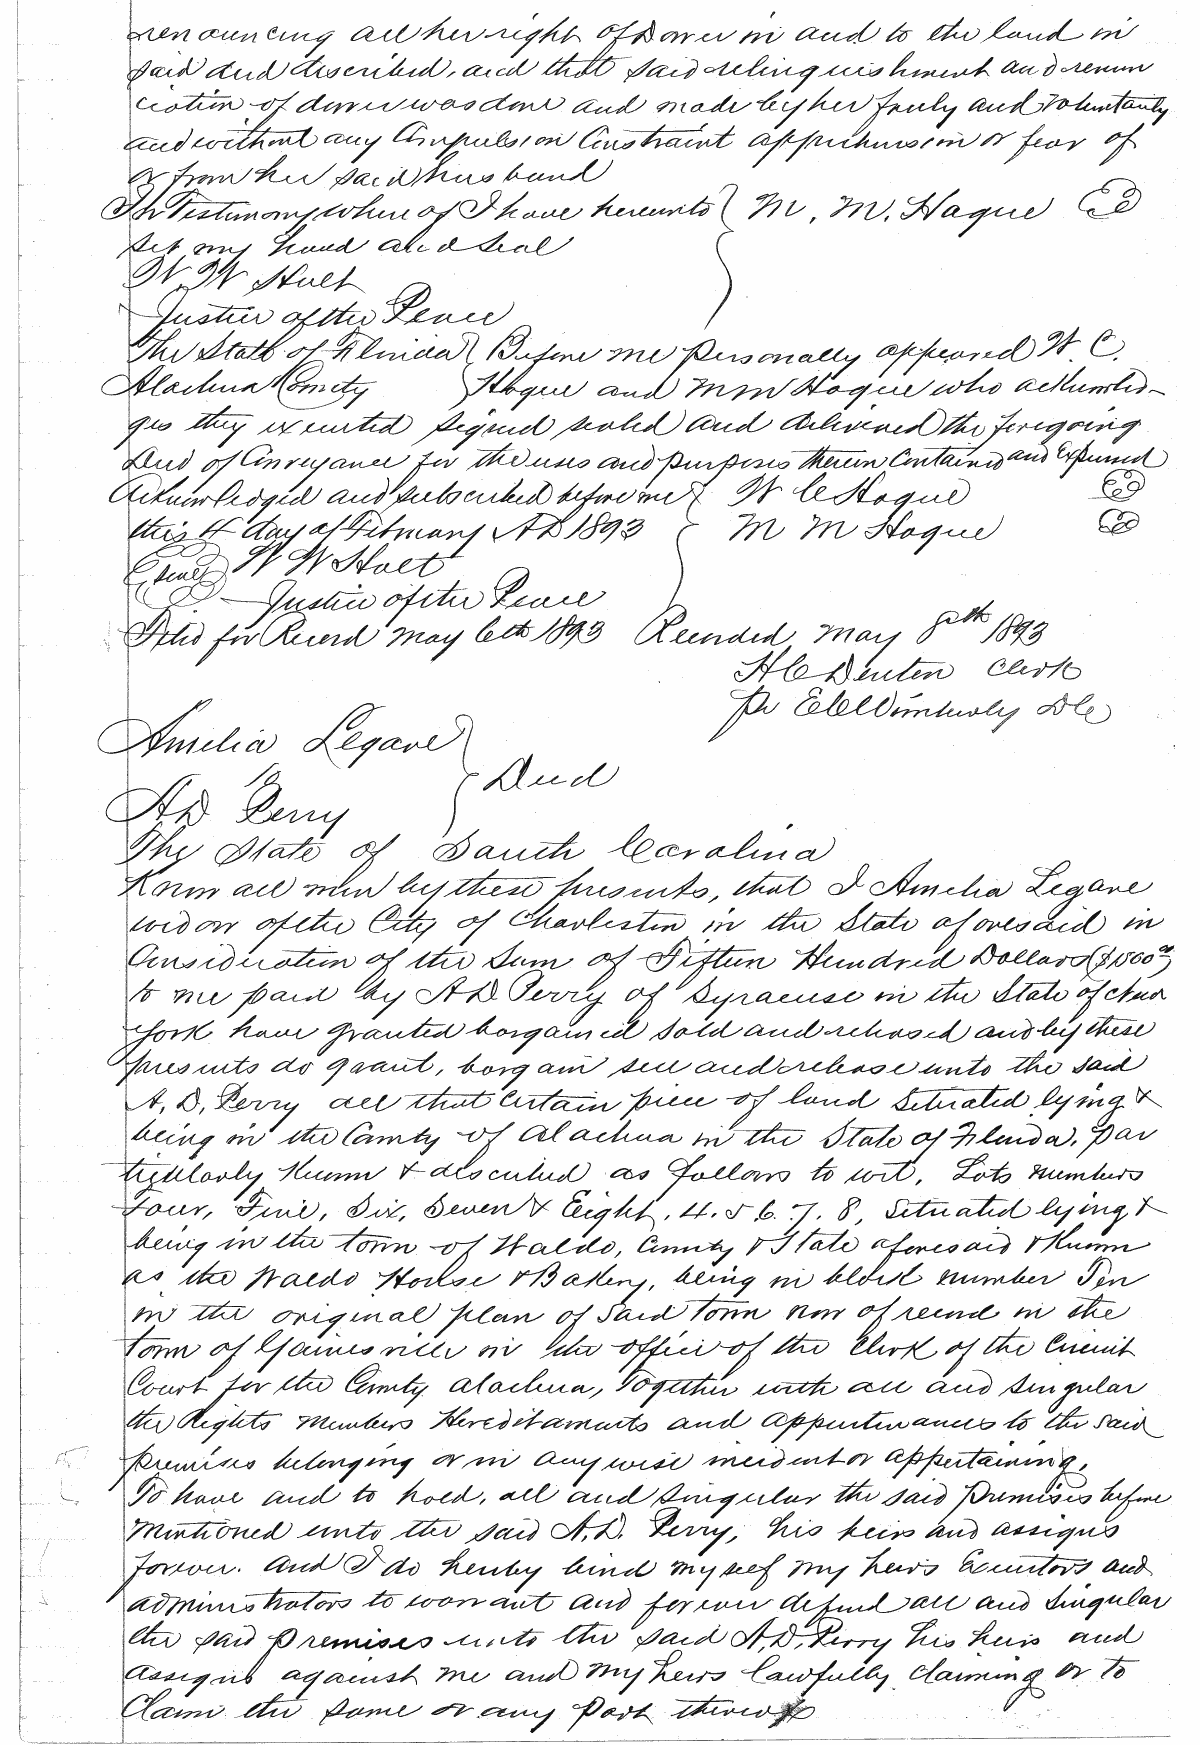 renouncing all her right of Dower in and to the land in
said deed described, and that said relinquishment and renun
ciation of dower was done and made by her freely and voluntarily
and without any Compulsion Constraint apprehension or fear of
or from her said husband
In Testimony where of I have hereunto M. M. Hague
set my hand and seal
W. W. Hult
Justice of the Peace
The State of Florida Before me personally appeared W. C.
Alachua County Hague and M M Hague who acknowled-
ges they executed signed sealed and delivered the foregoing
Deed of Conveyance for the uses and purposes therein Contained and Expressed
Acknowledged and subscribed before me W C Hague
this 4 day of February AD 1893 M M Hague
(Seal) W W Hult
Justice of the Peace
Filed for Record May 6th 1893 Recorded May 8th 1893
H C Denton Clerk
Pr DC
Amelia Legare
to Deed
A D Perry
The State of South Carolina
Know all men by these presents, that I Amelia Legare
widow of the City of Charleston in the State aforesaid in
Consideration of the Sum of Fifteen Hundred Dollars ($1500 00)
to me paid by A D Perry of Syracuse in the State of New
York have granted bargained sold and released and by these
presents do grant, bargain sell and release unto the said
A. D. Perry all that Certain piece of land Situated lying &
being in the County of Alachua in the State of Florida, par
ticularly Known & described as follows to wit, Lots numbers
Four, Five, Six, Seven & Eight, 4. 5 6. 7. 8, Situated lying &
being in the town of Waldo, County & State aforesaid & Known
as the Waldo House & Bakery, being in block number Ten
in the original plan of said town now of record in the
town of Gainesville in the office of the Clerk of the Circuit
Court for the County Alachua, Together with all and singular
the Rights members Hereditaments and appurtenances to the said
premises belonging or in anywise incident or appertaining,
To have and to hold, all and singular the said premises before
mentioned unto the said A. D. Perry, his heirs and assigns
forever. And I do hereby bind myself my heirs Executors and
administrators to warrant and forever defend all and singular
the said premises unto the said A. D. Perry his heirs and
assigns against me and my heirs lawfully Claiming or to
Claim the same or any part thereof